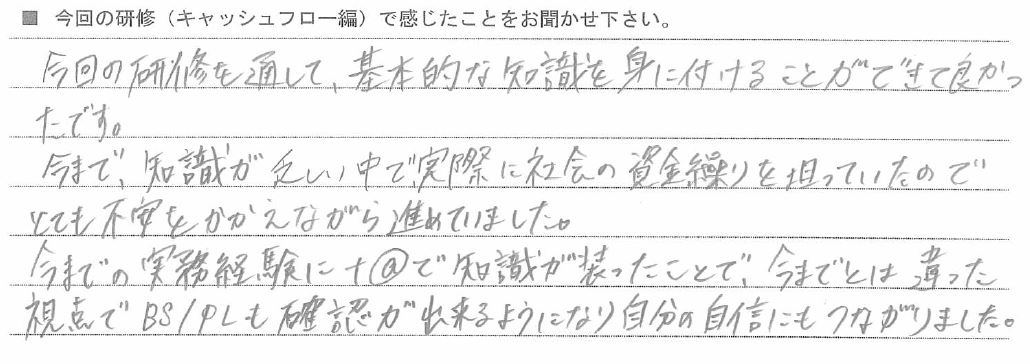 ■ 今回の研修（キャッシュフロー編）で感じたことをお聞かせ下さい。
今回の研修を通して、基本的な知識を身に付けることができて良かっ
たです。
今まで、知識が乏しい中で、実際に社会の資金繰りを担っていたので
とても不安をかかえながら進めていました。
今までの実務経験に+@で知識が装ったことで、今までとは違った
視点でBS/PLも確認が出来るようになり自分の自信にもつながりました。